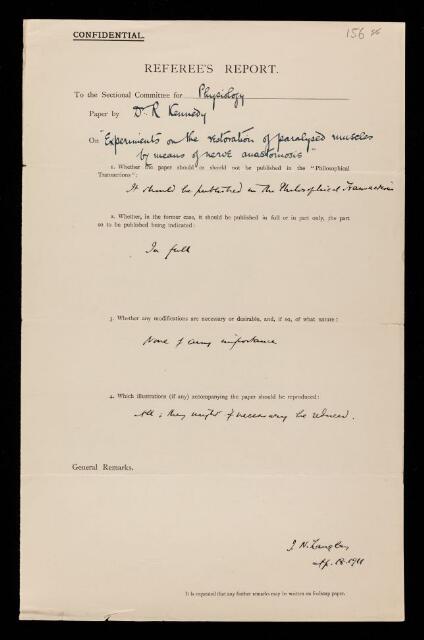 156
CONFIDENTIAL.
REFEREE'S REPORT.
To the Sectional Committee for Physiology
Paper by Dr. R Kennedy
On "Experiments on the restoration of paralysed muscles
by means of nerve anastomosis"
1. Whether the paper should or should not be published in the "Philosophical
Transactions":
It should be published in the Philosophical Transactions
2. Whether, in the former case, it should be published in full or in part only, the part
so to be published being indicated:
In full
3. Whether any modifications are necessary or desirable, and, if so, of what nature:
None of any importance
4. Which illustrations (if any) accompanying the paper should be reproduced:
All; they might if necessary be reduced.
General Remarks.
J. N. Langley
Ap. 18. 1911
It is requested that any further remarks may be written on foolscap paper.